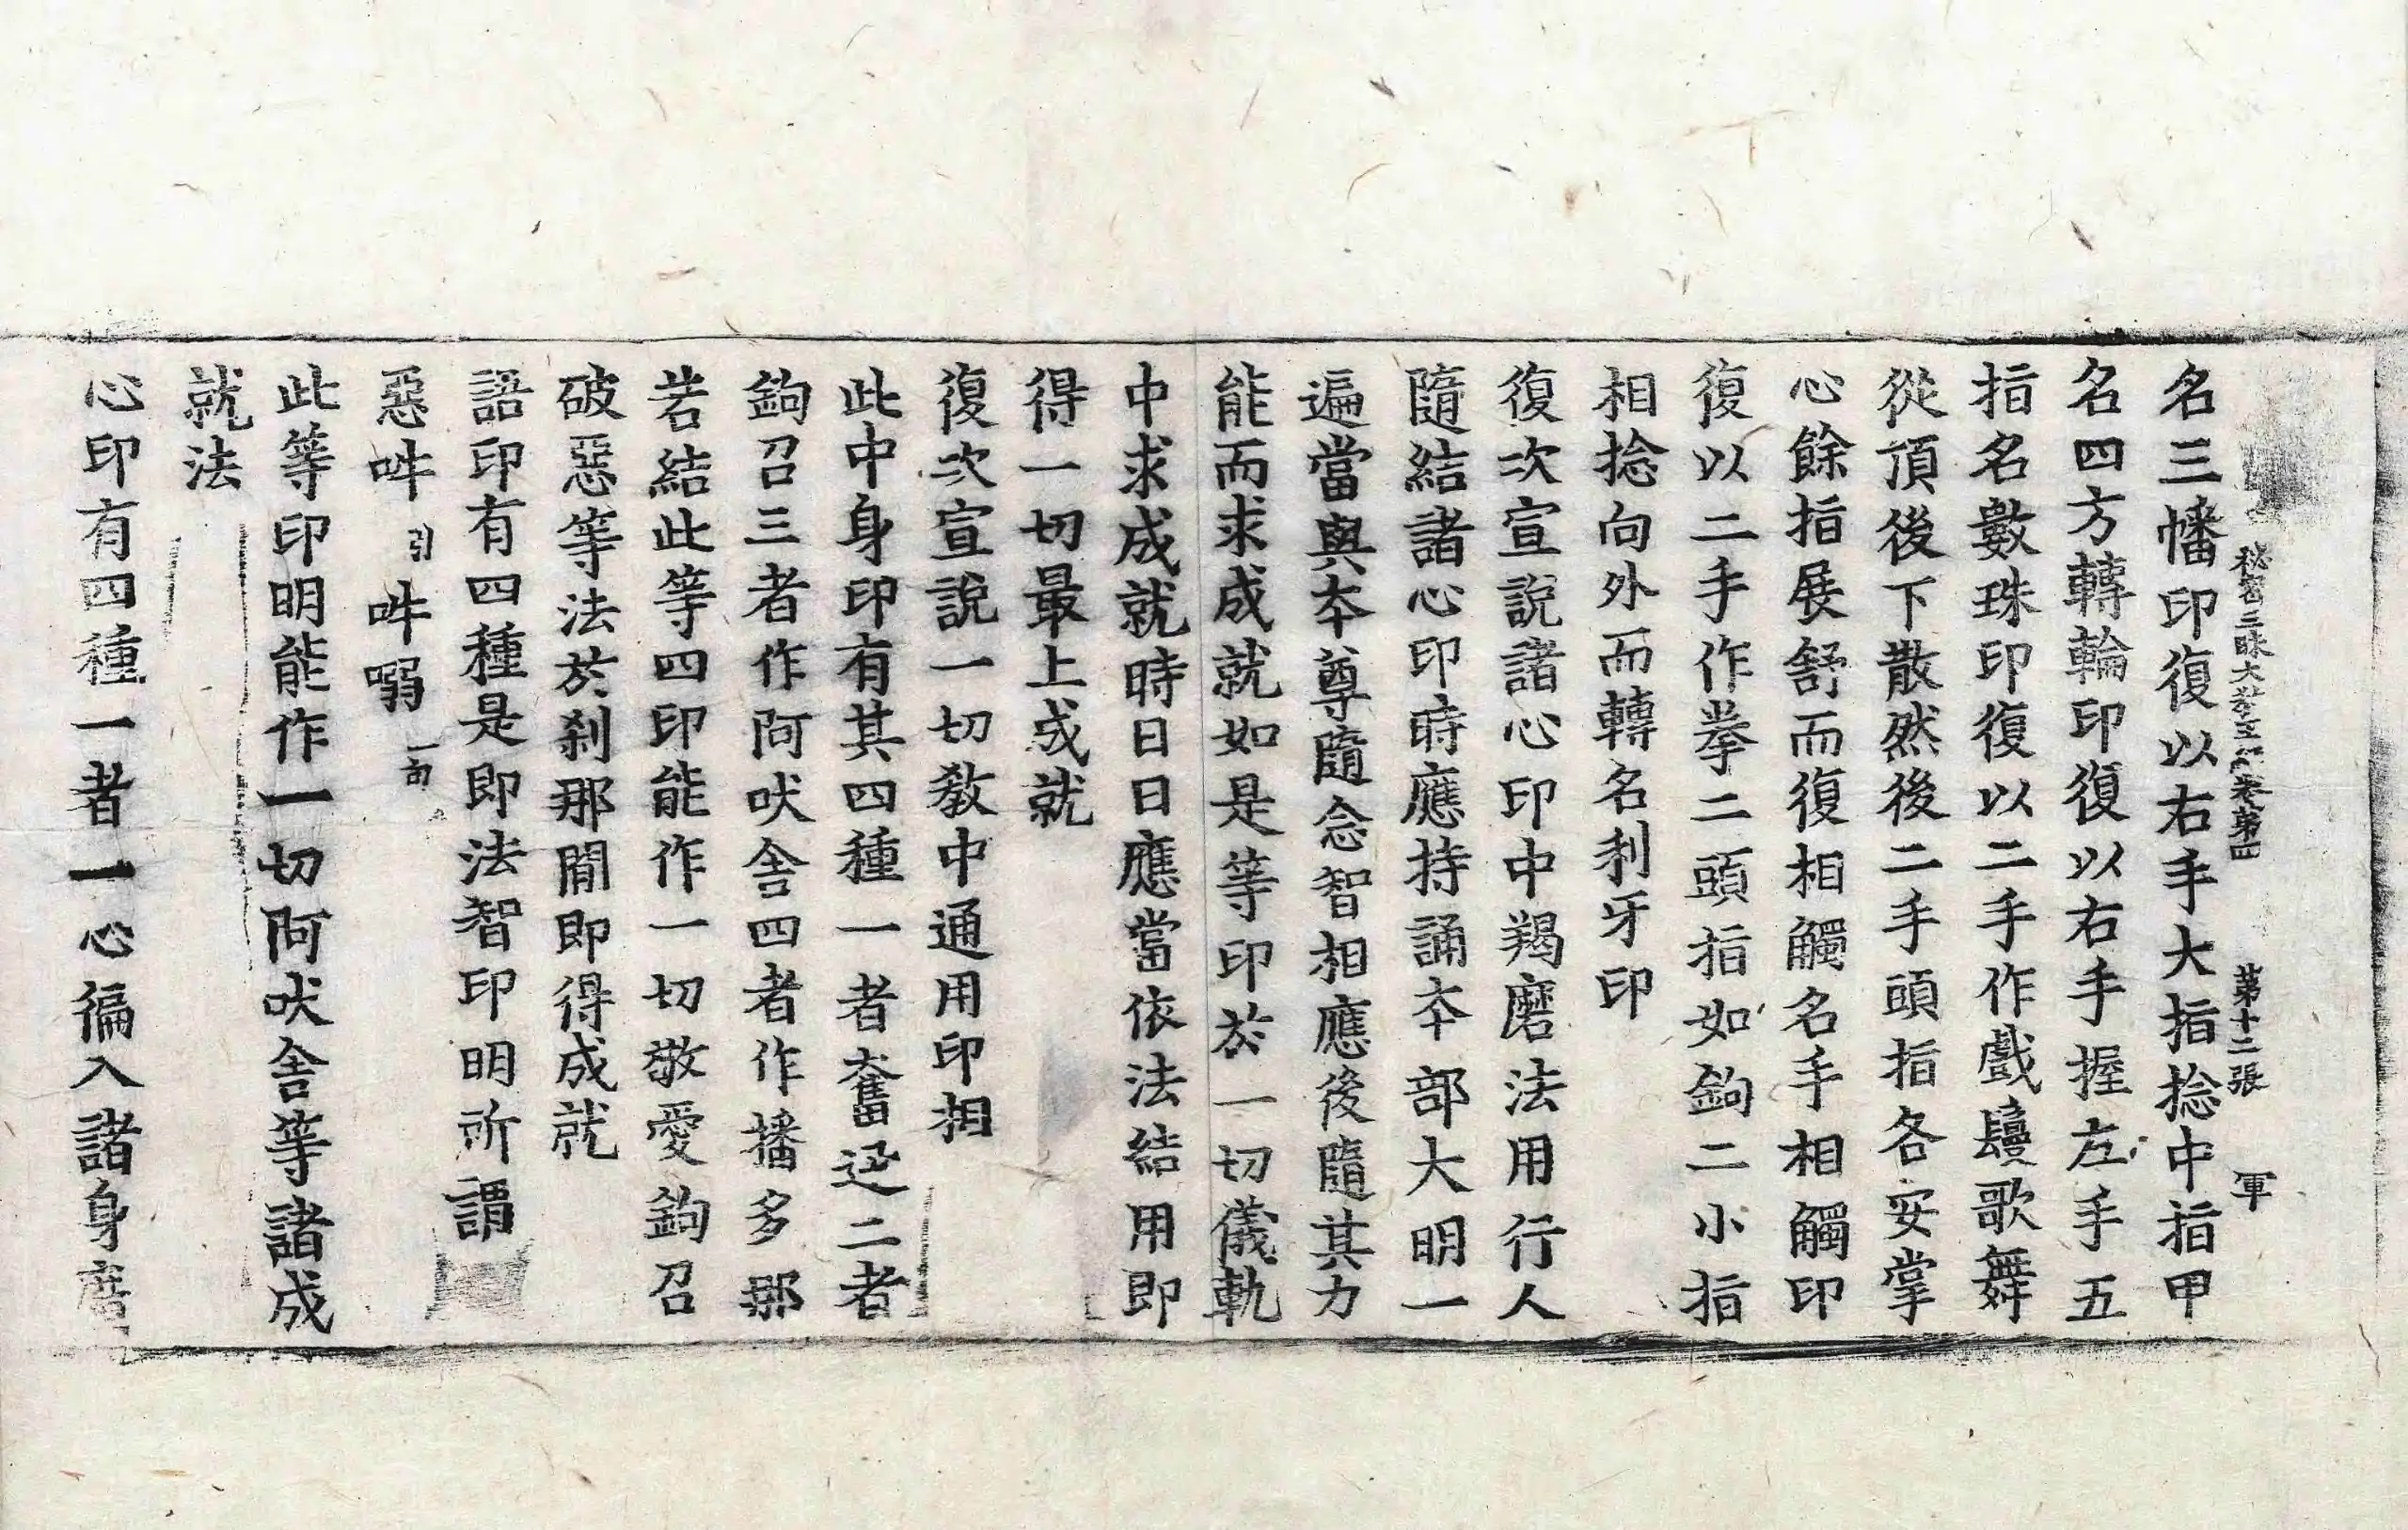 秘密三昧大教王經卷第四　第十二張　軍
名三幡印復以右手大指捻中指甲
名四方轉輪印復以右手握左手五
指名數珠印復以二手作戲鬘歌舞
從頂後下散然後二手頭指各安掌
心餘指展舒而復相觸名手相觸印
復以二手作拳二頭指如鉤二小指
相捻向外而轉名利牙印
復次宣說諸心印中羯磨法用行人
隨結諸心印時應持誦本部大明一
遍當與本尊隨念智相應後隨其力
能而求成就如是等印於一切儀軌
中求成就時日日應當依法結用即
得一切最上成就
復次宣說一切教中通用印相
此中身印有其四種一者奮迅二者
鉤召三者作阿吠舍四者作播多那
若結此等四印能作一切敬愛鉤召
破惡等法於刹那間即得成就
語印有四種是即法智印明所謂
惡吽引吽嗢一句
此等印明能作一切阿吠舍等諸成
就法
心印有四種一者一心徧入諸身度